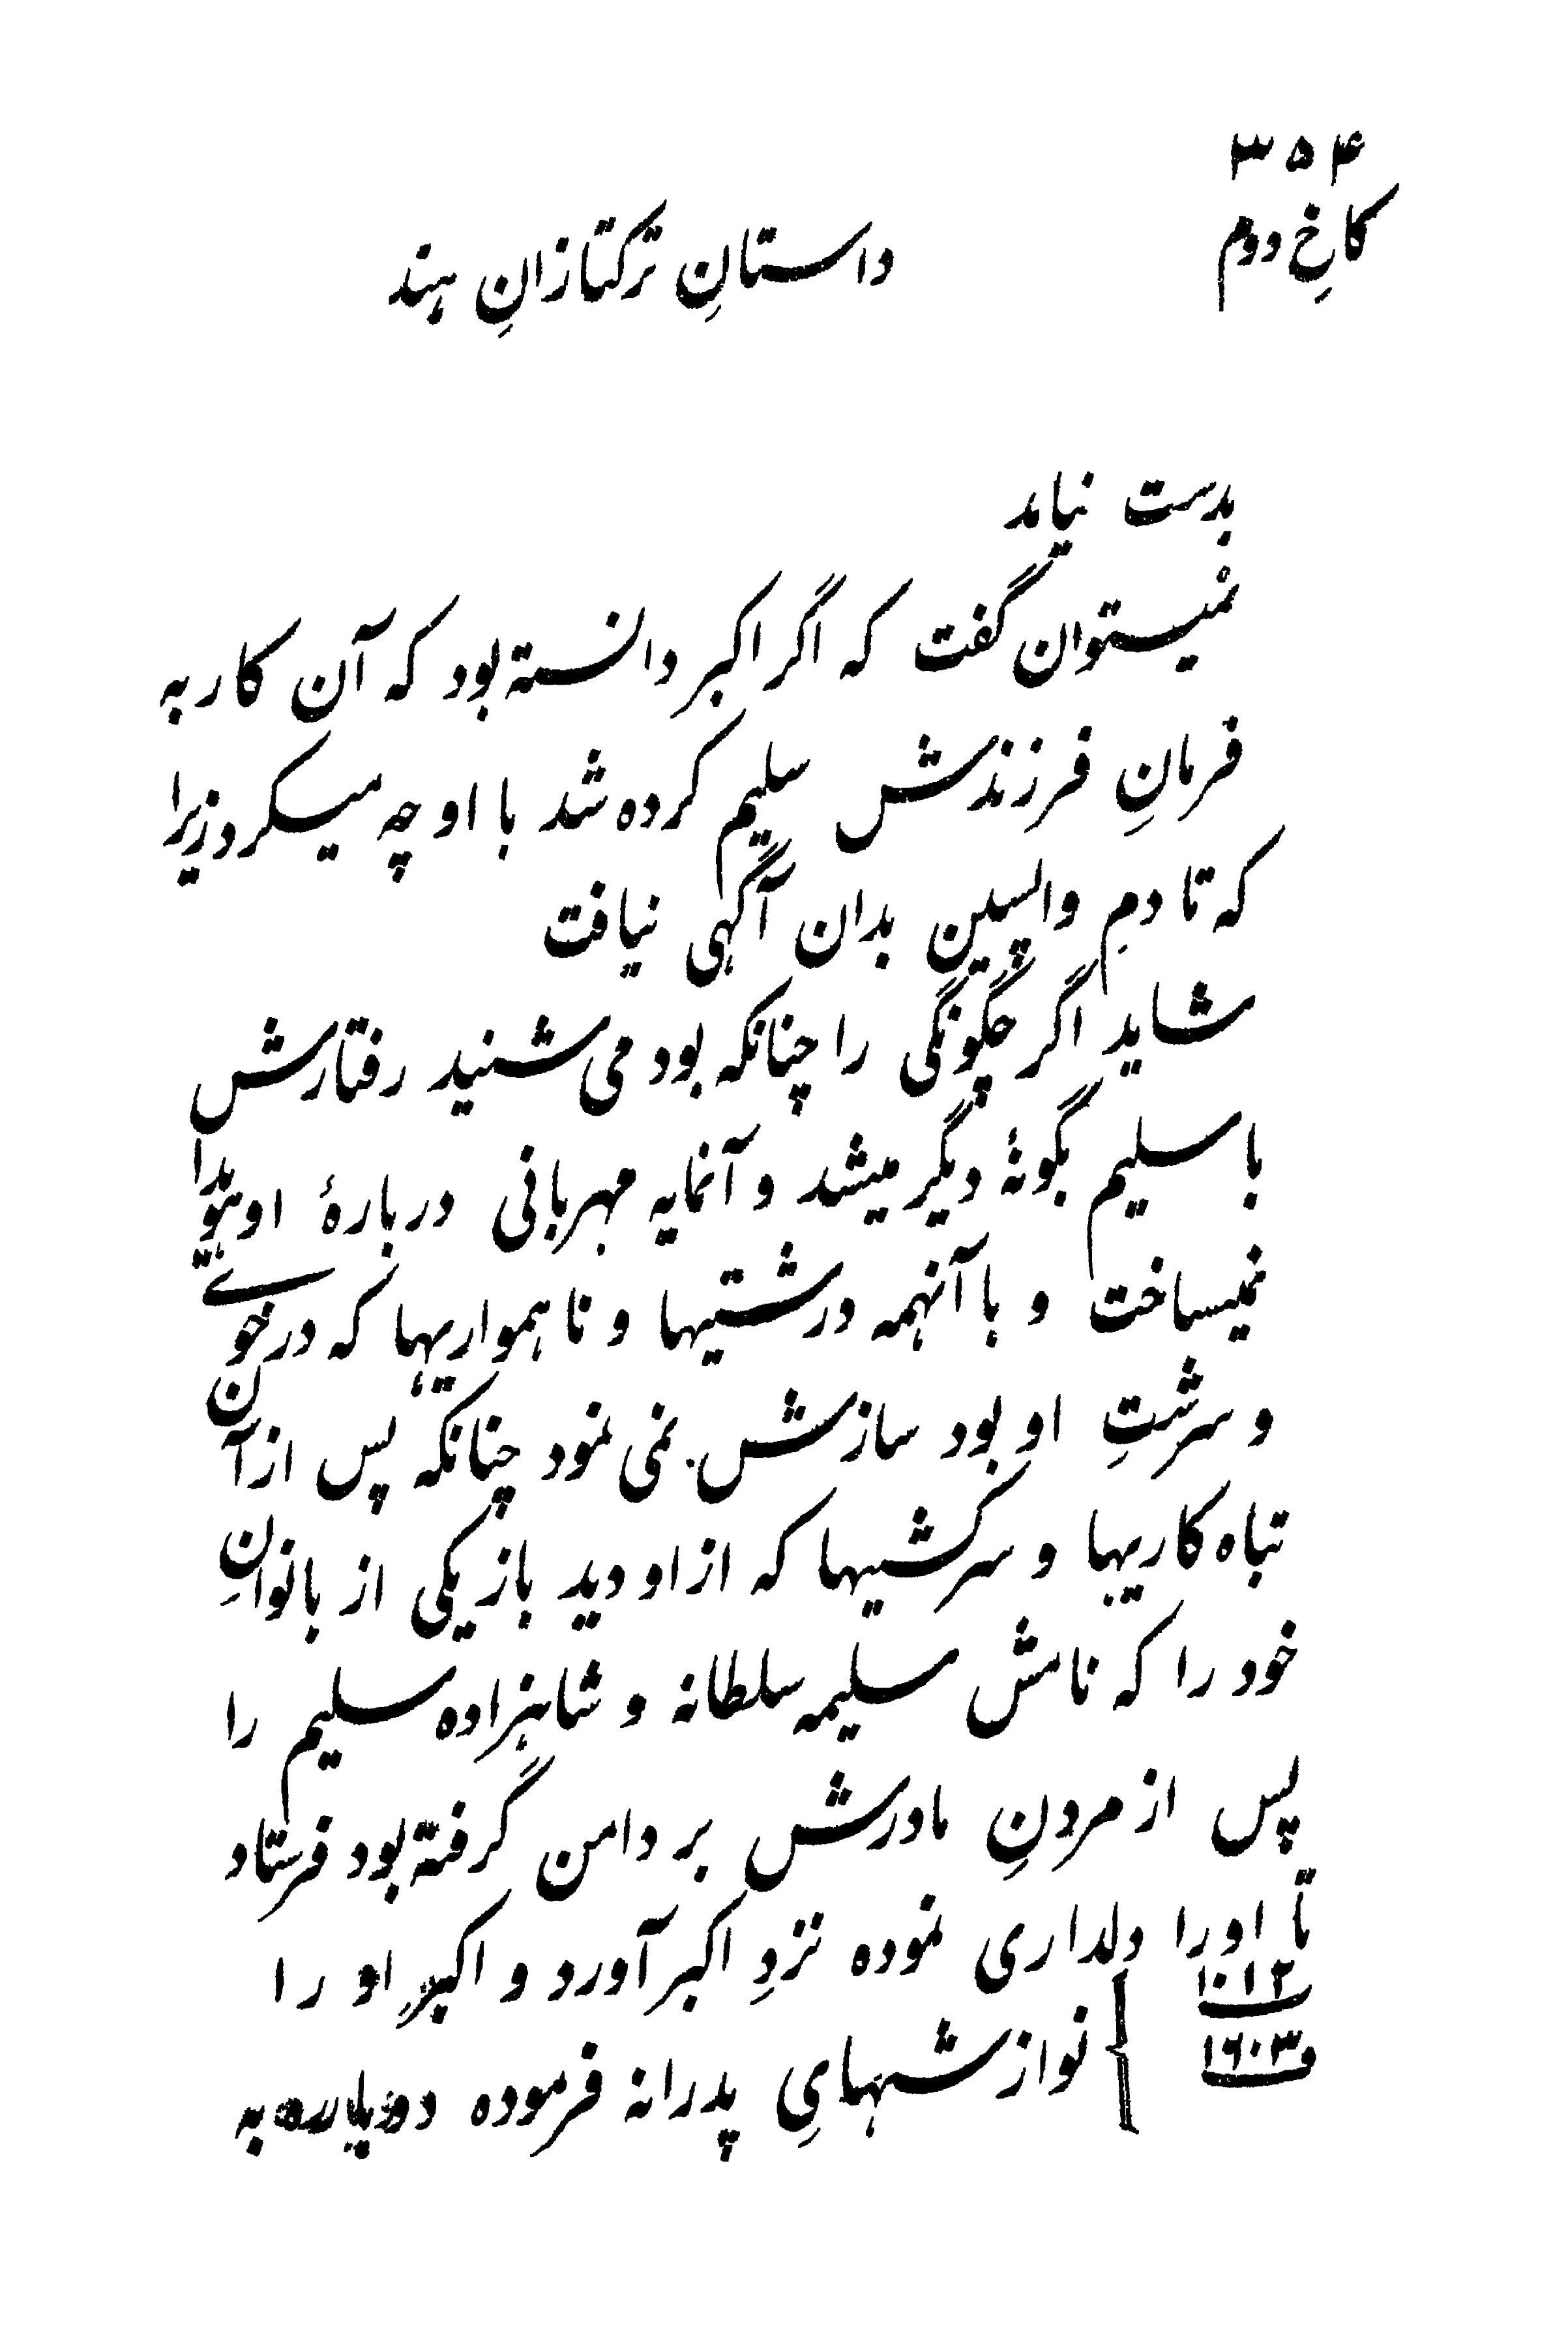 ۳۵۴
کاخِ دوم
داستانِ ترکتازانِ هند
بدست نیاید
نمیستوان گفت که اگر اکبر دانسته بود که آن کار به
فرمانِ فرزندش سلیم کرده شد با او چه میکرد زیرا
که تا دمِ واپسین بدان آگهی نیافت
شاید اگر چگونگی را چنانکه بود می شنید رفتارش
با سلیم بگونهٔ دیگر میشد و آنمایه مهربانی دربارهٔ او هویدا
نمیساخت و با آنهمه درشتیها و ناهمواریها که در خوے
و سرشتِ او بود سازش نمی نمود چنانکه پس از آن
تباه کاریها و سرکشیها که از او دید باز یکی از بانوانِ
خود را که نامش سلیمه سلطانه و شاهزاده سلیم را
پس از مردنِ مادرش بر دامن گرفته بود فرستاد
تا او را دلداری نموده نزدِ اکبر آورد و اکبر او را
۱۰۱۲
۱۶۰۳
نوازشهایِ پدرانه فرموده دوباره به